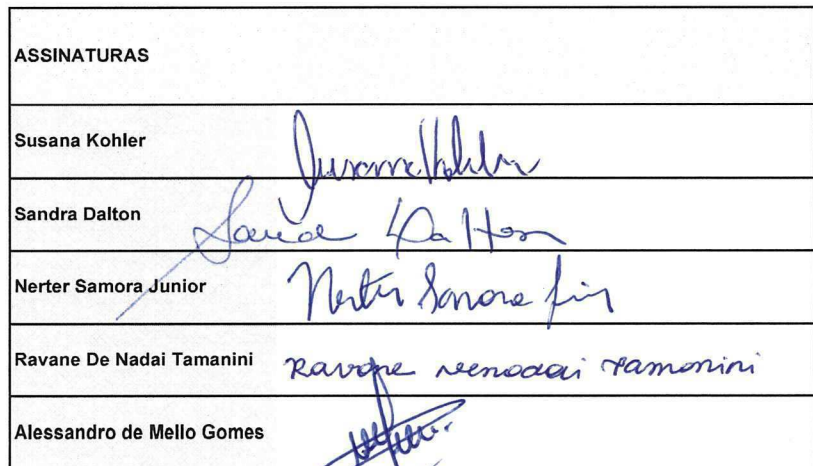 ASSINATURAS
Susana Kohler Susana Kohler
Sandra Dalton Sandra Dalton
Nerter Samora Junior Nerter Samora Jun
Ravane De Nadai Tamanini Ravane Denadai Tamanini
Alessandro de Mello Gomes